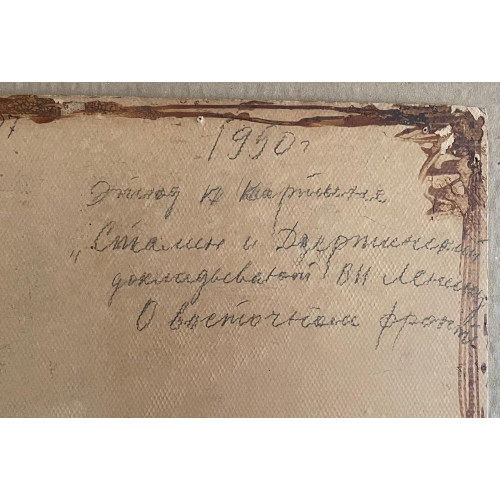 1950 г
Этюд к картине
„Сталин и Дзержинский
докладывают ВИ Ленину
О восточном фронте